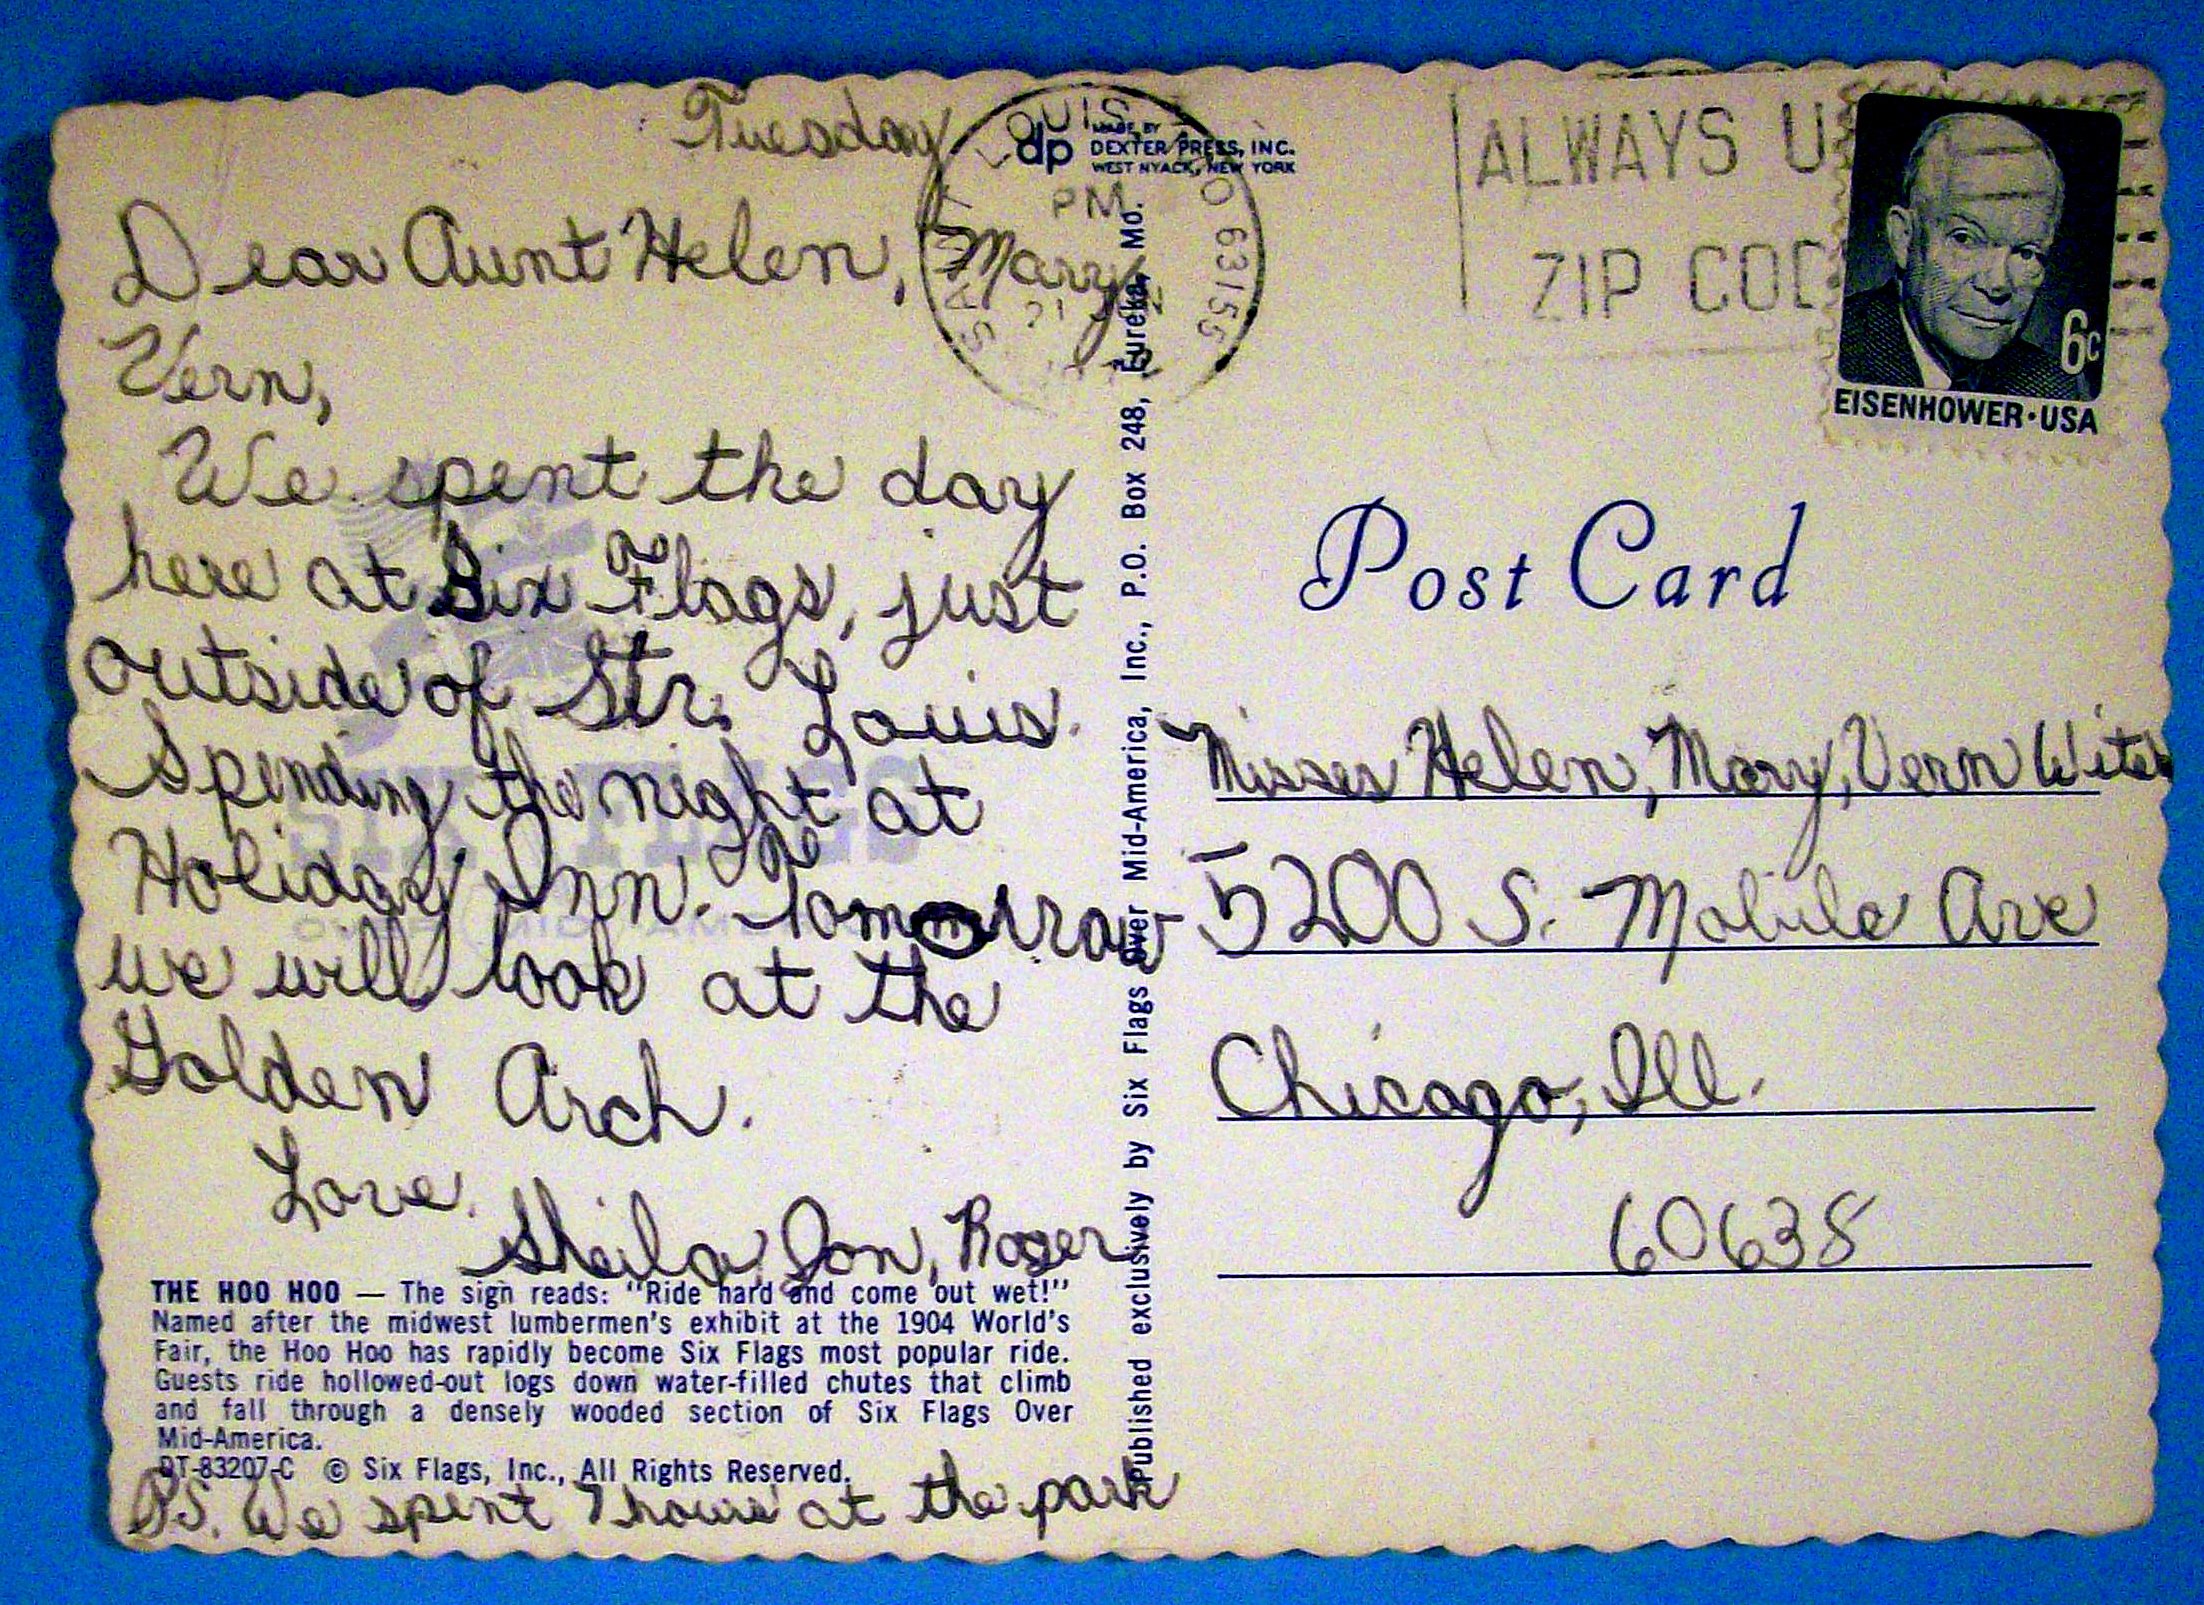 Tuesday
Dear Aunt Helen, Mary,
Vern,
We spent the day
here at Six Flags, just
outside of St. Louis.
Spending the night at
Holiday Inn. Tomorrow
we will look at the
Golden Arch.
Love,
Sheila, Jon, Roger
THE HOO HOO — The sign reads: "Ride hard and come out wet!"
Named after the midwest lumbermen's exhibit at the 1904 World's
Fair, the Hoo Hoo has rapidly become Six Flags most popular ride.
Guests ride hollowed-out logs down water-filled chutes that climb
and fall through a densely wooded section of Six Flags Over
Mid-America.
DT-83207-C © Six Flags, Inc., All Rights Reserved.
P.S. We spent 7 hours at the park
dp MADE BY
DEXTER PRESS, INC.
WEST NYACK, NEW YORK
SAINT LOUIS
PM
MO 63155
21
Published exclusively by Six Flags Over Mid-America, Inc., P.O. Box 248, Eureka, Mo.
ALWAYS U
ZIP COD
6c
EISENHOWER·USA
Post Card
Misses Helen, Mary, Vern
5200 S. Mobile Ave
Chicago, Ill.
60638